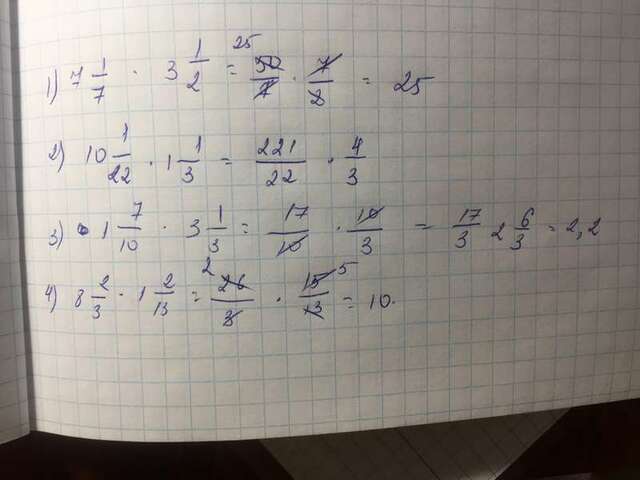 1) 7 1/7 · 3 1/2 = 50/7 · 7/2 = 25
2) 10 1/22 · 1 1/3 = 221/22 · 4/3
3) 1 7/10 · 3 1/3 = 17/10 · 10/3 = 17/3 2 6/3 = 2,2
4) 8 2/3 · 1 2/13 = 26/3 · 15/13 = 10.